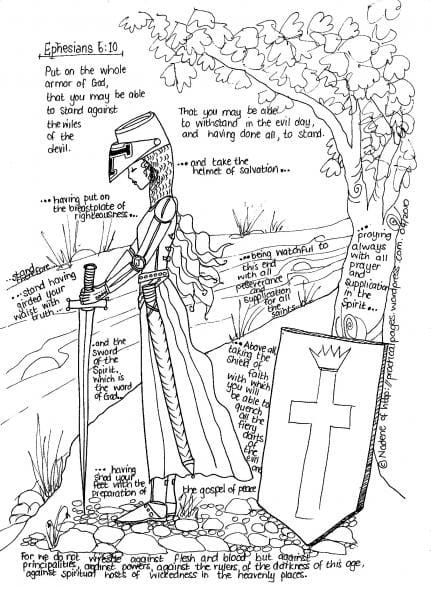 Ephesians 6:10
Put on the whole
armor of God,
that you may be able
to stand against
the wiles
of the
devil.
That you may be able
to withstand in the evil day,
and having done all, to stand.
...and take the
helmet of salvation...
...having put on
the breastplate of
righteousness...
...stand
therefore
...stand having
girded your
waist with
truth...
...being watchful to
this end
with all
perseverance
and
supplication
for all
the saints...
...praying
always
with all
prayer
and
supplication
in the
Spirit...
...and the
sword
of the
Spirit,
which is
the word
of God...
...Above all,
taking the
shield of
faith
with which
you will
be able to
quench
all the
fiery
darts
of the
evil
one
...having
shod your
feet with the
preparation of
the gospel of peace
For we do not wrestle against flesh and blood but against
principalities, against powers, against the rulers of the darkness of this age,
against spiritual hosts of wickedness in the heavenly places.
© Nadene of http://practicalpages.wordpress.com